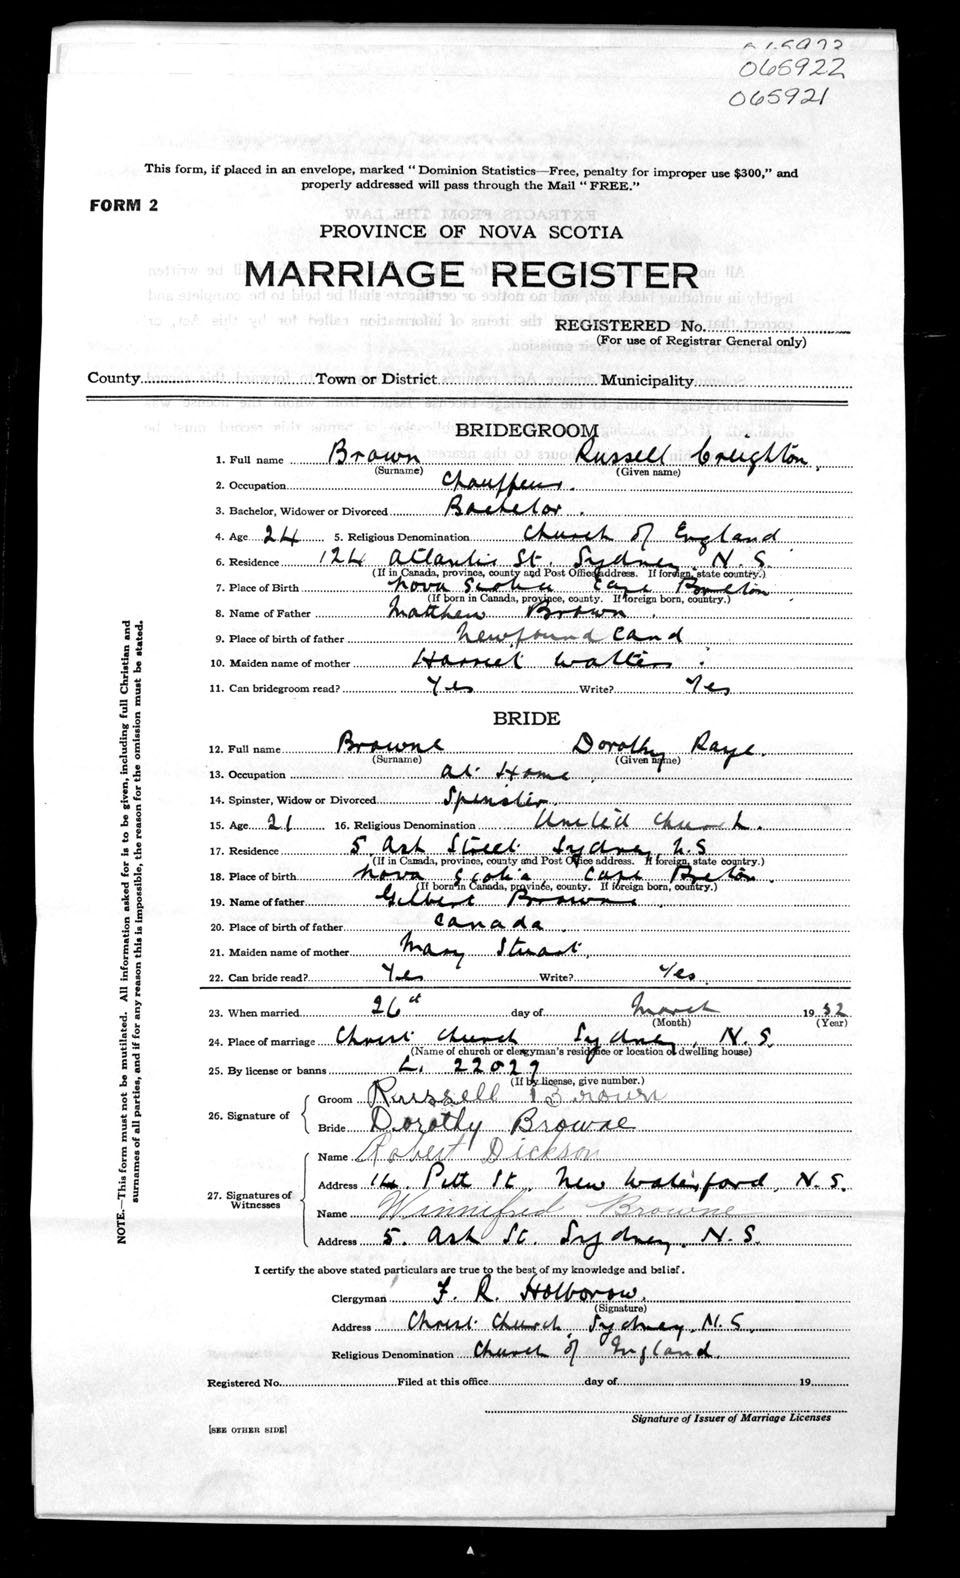 065922
065921
This form, if placed in an envelope, marked "Dominion Statistics—Free, penalty for improper use $300," and
properly addressed will pass through the Mail "FREE."
FORM 2
PROVINCE OF NOVA SCOTIA
MARRIAGE REGISTER
REGISTERED No.
(For use of Registrar General only)
County Town or District Municipality
BRIDEGROOM
1. Full name Brown Russell Creighton
(Surname) (Given name)
2. Occupation Chauffeur.
3. Bachelor, Widower or Divorced Bachelor.
4. Age 24 5. Religious Denomination Church of England
6. Residence 124 Atlantic St. Sydney, N. S.
(If in Canada, province, county and Post Office address. If foreign, state country.)
7. Place of Birth Nova Scotia Cape Breton
(If born in Canada, province, county. If foreign born, country.)
8. Name of Father Matthew Brown.
9. Place of birth of father Newfoundland
10. Maiden name of mother Harriet Walters.
11. Can bridegroom read? Yes Write? Yes
BRIDE
12. Full name Browne Dorothy Raye.
(Surname) (Given name)
13. Occupation at Home.
14. Spinster, Widow or Divorced Spinster.
15. Age 21 16. Religious Denomination United Church.
17. Residence 5. Ash Street Sydney, N.S
(If in Canada, province, county and Post Office address. If foreign, state country.)
18. Place of birth Nova Scotia, Cape Breton.
(If born in Canada, province, county. If foreign born, country.)
19. Name of father Gilbert Browne.
20. Place of birth of father Canada.
21. Maiden name of mother Mary Stuart.
22. Can bride read? Yes Write? Yes.
23. When married 26th day of March 1932
(Month) (Year)
24. Place of marriage Christ Church Sydney, N. S.
(Name of church or clergyman's residence or location of dwelling house)
25. By license or banns L. 22029
(If by license, give number.)
26. Signature of
Groom Russell Brown
Bride Dorothy Browne
27. Signatures of Witnesses
Name Robert Dickson
Address 14. Pitt St. New Waterford, N. S.
Name Winnifred Browne
Address 5. Ash St. Sydney. N. S.
I certify the above stated particulars are true to the best of my knowledge and belief.
Clergyman F. R. Holborow.
(Signature)
Address Christ Church, Sydney, N. S.
Religious Denomination Church of England.
Registered No. Filed at this office day of 19
Signature of Issuer of Marriage Licenses
[SEE OTHER SIDE]
NOTE.—This form must not be mutilated. All information asked for is to be given, including full Christian and
surnames of all parties, and if for any reason this is impossible, the reason for the omission must be stated.